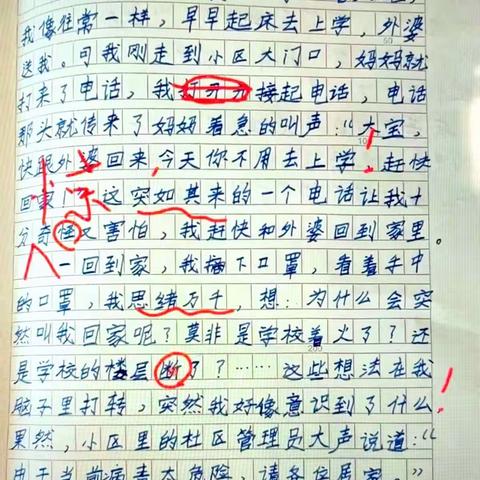 我像往常一样，早早起床去上学，外婆
送我。可我刚走到小区大门口，妈妈就
打来了电话，我打开接起电话，电话
那头就传来了妈妈着急的叫声：“大宝，
快跟外婆回来，今天你不用去上学！赶快
回家！”这突如其来的一个电话让我十
分奇怪又害怕，我赶快和外婆回到家里。
一回到家，我摘下口罩，看着手中
的口罩，我思绪万千，想：为什么会突
然叫我回家呢？莫非是学校着火了？还
是学校的楼层断了？……这些想法在我
脑子里打转，突然我好像意识到了什么！
果然，小区里的社区管理员大声说道：“
由于当前病毒太危险，请各位居家。”